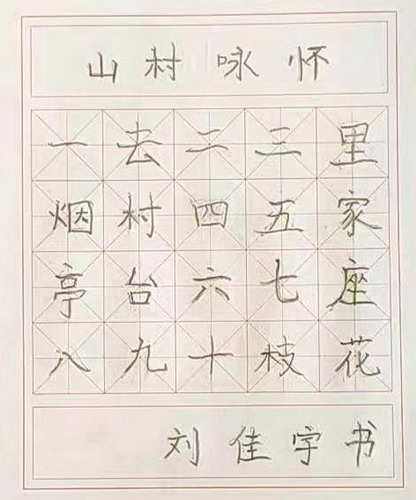 山村咏怀
一去二三里
烟村四五家
亭台六七座
八九十枝花
刘佳宇书